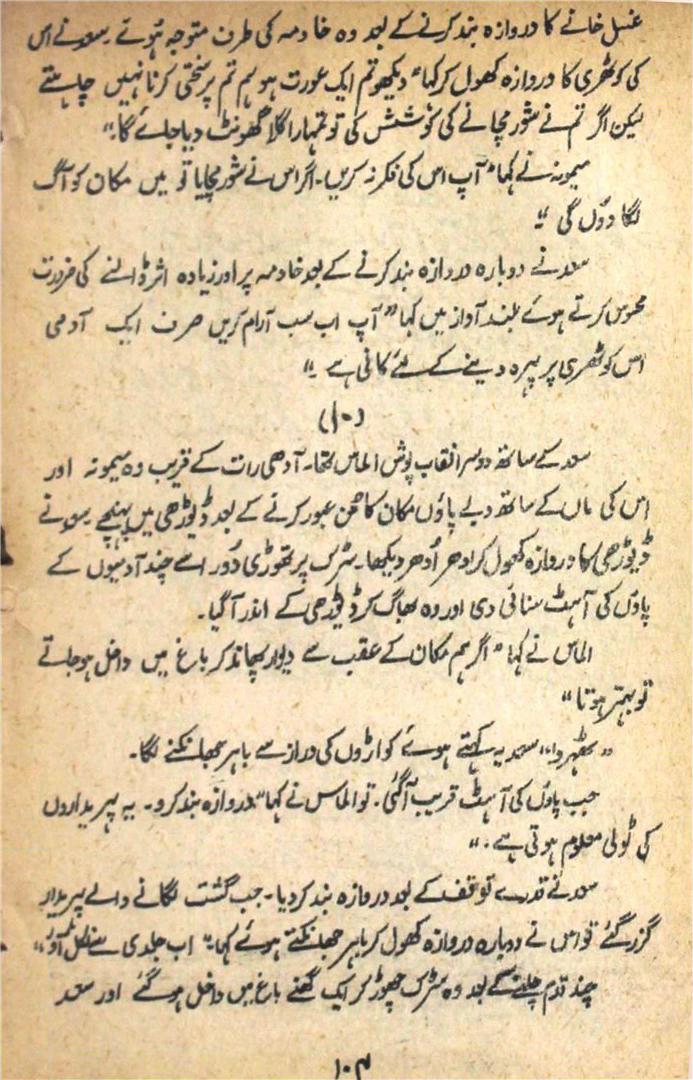 غسل خانے کا دروازہ بند کرنے کے بعد وہ خادمہ کی طرف متوجہ ہوئے۔ سعد نے اس
کی کوٹھری کا دروازہ کھول کر کہا "دیکھو تم ایک عورت ہو ہم تم پر سختی کرنا نہیں چاہتے
لیکن اگر تم نے شور مچانے کی کوشش کی تو تمہارا گلا گھونٹ دیا جائے گا۔"
میمونہ نے کہا "آپ اس کی فکر نہ کریں۔ اگر اس نے شور مچایا تو میں مکان کو آگ
لگا دوں گی۔"
سعد نے دوبارہ دروازہ بند کرنے کے بعد خادمہ پر اور زیادہ اثر ڈالنے کی ضرورت
محسوس کرتے ہوئے بلند آواز میں کہا "آپ اب سب آرام کریں صرف ایک آدمی
اس کوٹھری پر پہرہ دینے کے لئے کافی ہے۔"
(۱۰)
سعد کے ساتھ دوسرا نقاب پوش الماس تھا۔ آدھی رات کے قریب وہ میمونہ اور
اس کی ماں کے ساتھ دبے پاؤں مکان کا صحن عبور کرنے کے بعد ڈیوڑھی میں پہنچے۔ سعد نے
ڈیوڑھی کا دروازہ کھول کر ادھر اُدھر دیکھا۔ سڑک پر تھوڑی دُور اسے چند آدمیوں کے
پاؤں کی آہٹ سنائی دی اور وہ بھاگ کر ڈیوڑھی کے اندر آ گیا۔
الماس نے کہا "اگر ہم مکان کے عقب سے دیوار پھاند کر باغ میں داخل ہو جاتے
تو بہتر ہوتا"
"ٹھہرو!" سعد یہ کہتے ہوئے کواڑوں کی دراز سے باہر جھانکنے لگا۔
جب پاؤں کی آہٹ قریب آ گئی۔ تو الماس نے کہا "دروازہ بند کرو۔ یہ پہریداروں
کی ٹولی معلوم ہوتی ہے۔"
سعد نے قدرے توقف کے بعد دروازہ بند کر دیا۔ جب گشت لگانے والے پہریدار
گزر گئے تو اس نے دوبارہ دروازہ کھول کر باہر جھانکتے ہوئے کہا۔ "اب جلدی سے نکل آؤ"
چند قدم چلنے کے بعد وہ سڑک چھوڑ کر ایک گھنے باغ میں داخل ہو گئے اور سعد
۱۰۴